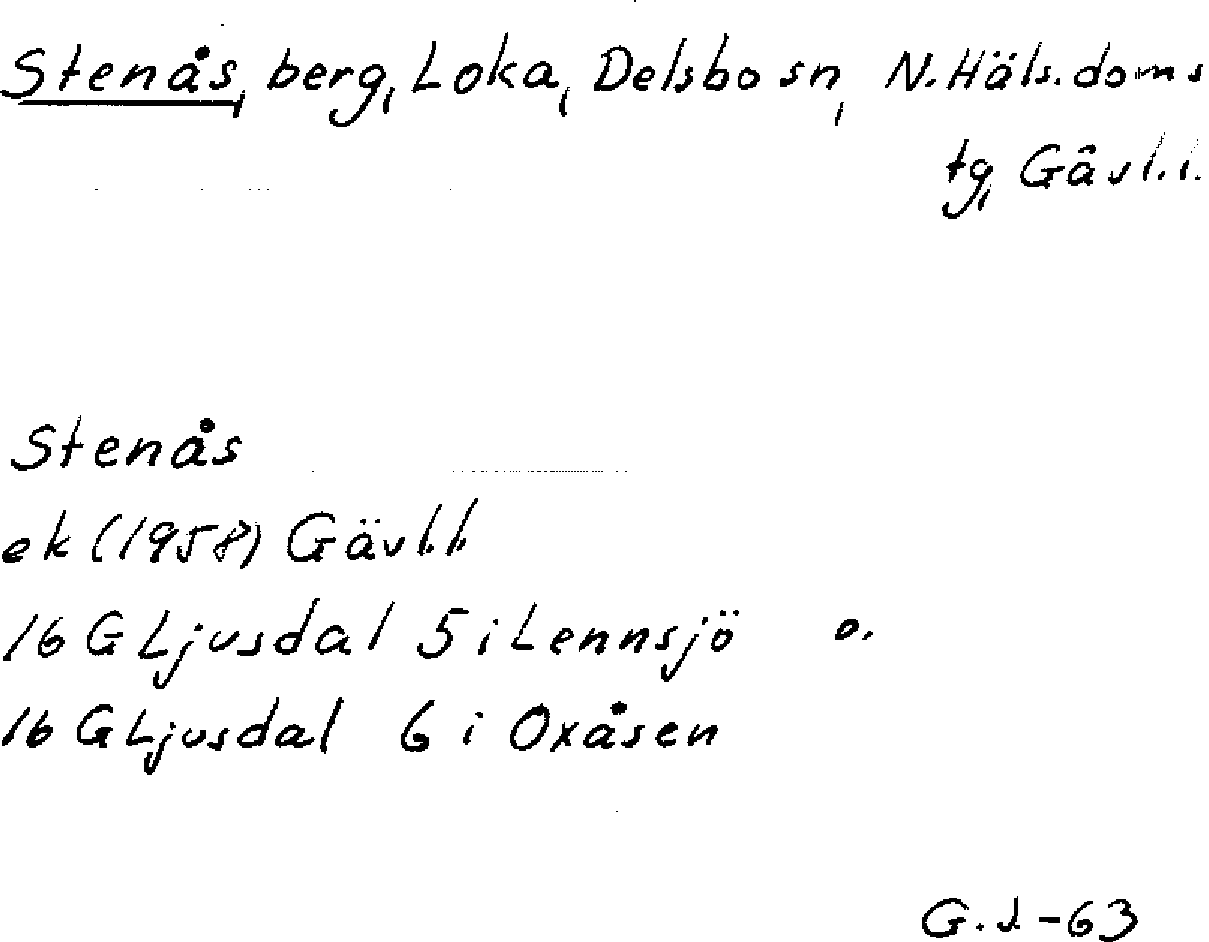 Stenås, berg, Loka, Delsbo sn, N. Häls. doms
tg, Gävl. l.
Stenås
ek (1958) Gävl. l.
16 G Ljusdal 5 i Lennsjö o.
16 G Ljusdal 6 i Oxåsen
G. J -63